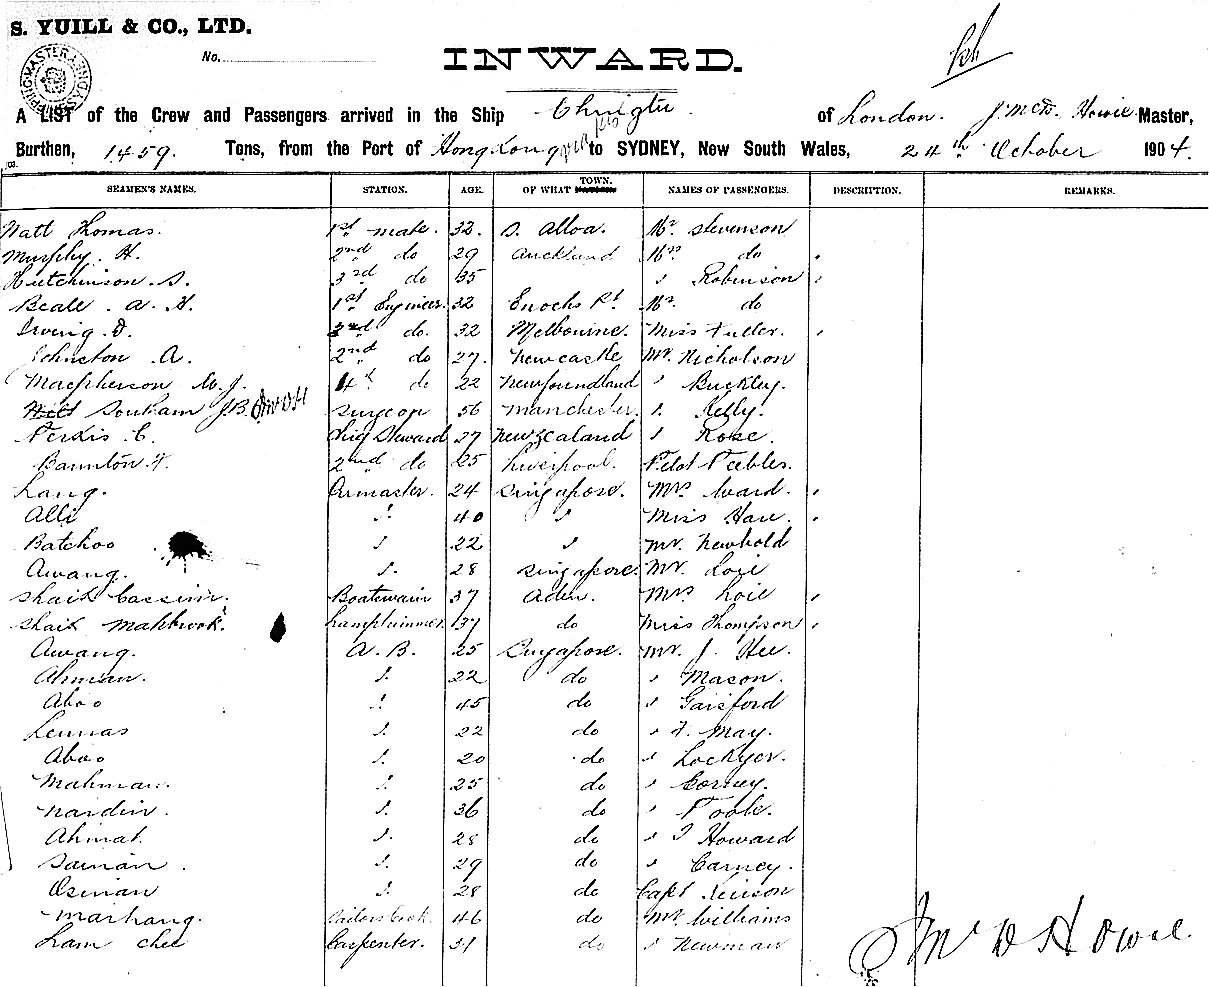 S. YUILL & CO., LTD.
No.
INWARD.
A LIST of the Crew and Passengers arrived in the Ship Chingtu of London. J. McD. Howie Master,
Burthen, 1459. Tons, from the Port of Hong Kong to SYDNEY, New South Wales, 24th October 1904.
SEAMEN'S NAMES. STATION. AGE. OF WHAT TOWN. NAMES OF PASSENGERS. DESCRIPTION. REMARKS.
Natl Thomas. 1st mate. 32. S. Alloa. Mr Stevenson
Murphy. H. 2nd do 29 Auckland Mrs do
Hutchinson. S. 3rd do 35 " Robinson
Beale. A. H. 1st Engineer. 32 Enochs Rd Mr. do
Irving. D. 2nd do. 32 Melbourne. Miss Fuller.
Johnston. A. 2nd do 27. Newcastle Mr. Nicholson
Macpherson W. J. 4th do 22 Newfoundland " Buckley.
Souham J. B. Surgeon 56 Manchester. " Kelly.
C. Chief Steward 27 New Zealand " Rose.
2nd do 25 Liverpool. Pilot Peebles.
Lang. 24 Singapore. Mrs Ward.
Alli " 40 " Miss Hare.
Batchoo " 22 " Mr. Newbold
Awang. " 28 Singapore. Mr. Loie
Shaik Cassim. Boatswain 37 Aden. Mrs Loie
Shaik Mahbrook. Lamptrimmer 37 do Miss Thompson
Awang. A. B. 25 Singapore. Mr. J. Hee.
Ahman. " 22 do " Mason.
Aboo " 45 do " Gaisford
Lennas " 22 do " F. May.
Aboo " 20 do " Lockyer.
Mahman. " 25 do " Corney.
Nardin. " 36 do " Poole.
Ahmat. " 28 do " J Howard
Saman. " 29 do " Carney.
Osman " 28 do Capt
Marhang. Sailors Cook. 46 do Mr Williams
Lam Chee Carpenter. 31 do " Newman
J McD Howie